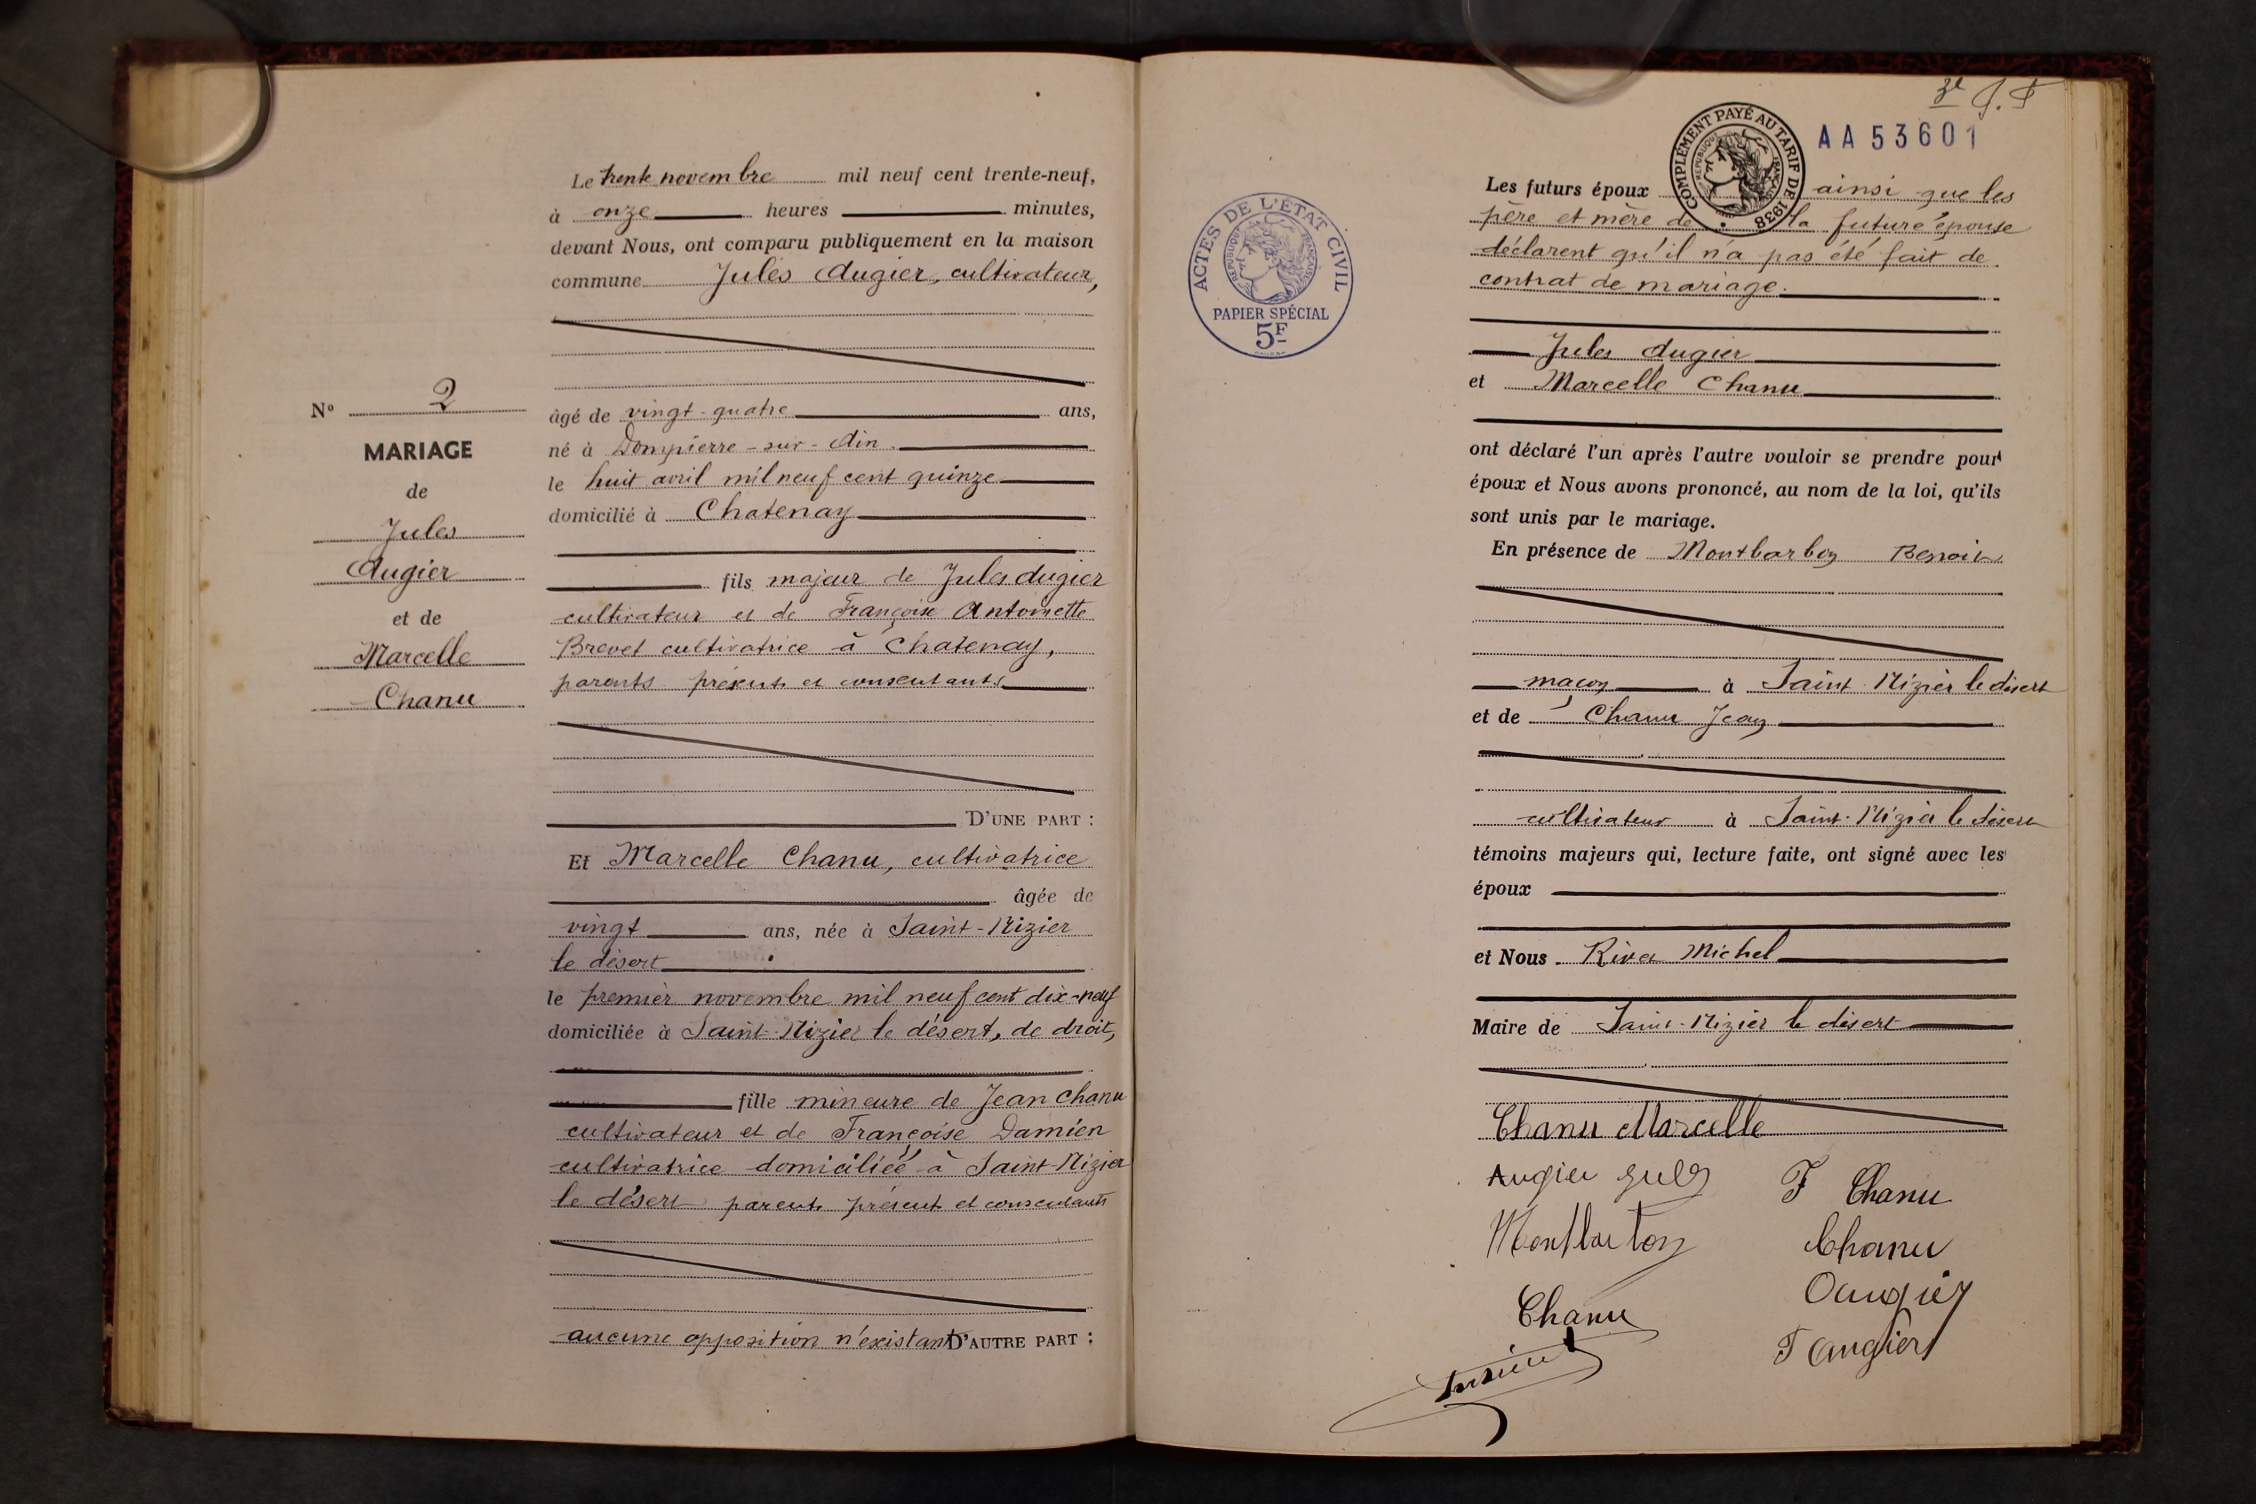 Le trente novembre mil neuf cent trente-neuf,
à onze heures minutes,
devant Nous, ont comparu publiquement en la maison
commune Jules Augier, cultivateur,
No 2
MARIAGE
de
Jules
Augier
et de
Marcelle
Chanu
âgé de vingt-quatre ans,
né à Dompierre-sur-Ain
le huit avril mil neuf cent quinze
domicilié à Chatenay
fils majeur de Jules Augier
cultivateur et de Françoise Antoinette
Brevet cultivatrice à Chatenay,
parents présents et consentants
D'UNE PART :
Et Marcelle Chanu, cultivatrice
âgée de
vingt ans, née à Saint-Nizier
le désert
le premier novembre mil neuf cent dix-neuf
domiciliée à Saint-Nizier le désert, de droit,
fille mineure de Jean Chanu
cultivateur et de Françoise Damien
cultivatrice domiciliés à Saint-Nizier
le désert parents présents et consentants
aucune opposition n'existant D'AUTRE PART :
ACTES DE L'ÉTAT CIVIL
RÉPUBLIQUE FRANÇAISE
PAPIER SPÉCIAL
5F
COMPLÉMENT PAYÉ AU TARIF DE 1938
RÉPUBLIQUE FRANÇAISE
AA53601
Les futurs époux ainsi que les
père et mère de la future épouse
déclarent qu'il n'a pas été fait de
contrat de mariage.
Jules Augier
et Marcelle Chanu
ont déclaré l'un après l'autre vouloir se prendre pour
époux et Nous avons prononcé, au nom de la loi, qu'ils
sont unis par le mariage.
En présence de Montbarbon Benoit
maçon à Saint-Nizier le désert
et de Chanu Jean
cultivateur à Saint-Nizier le désert
témoins majeurs qui, lecture faite, ont signé avec les
époux
et Nous Michel
Maire de Saint-Nizier le désert
Chanu Marcelle
Augier Jules
F Chanu
Montbarbon
Chanu
Chanu
Augier
F Augier